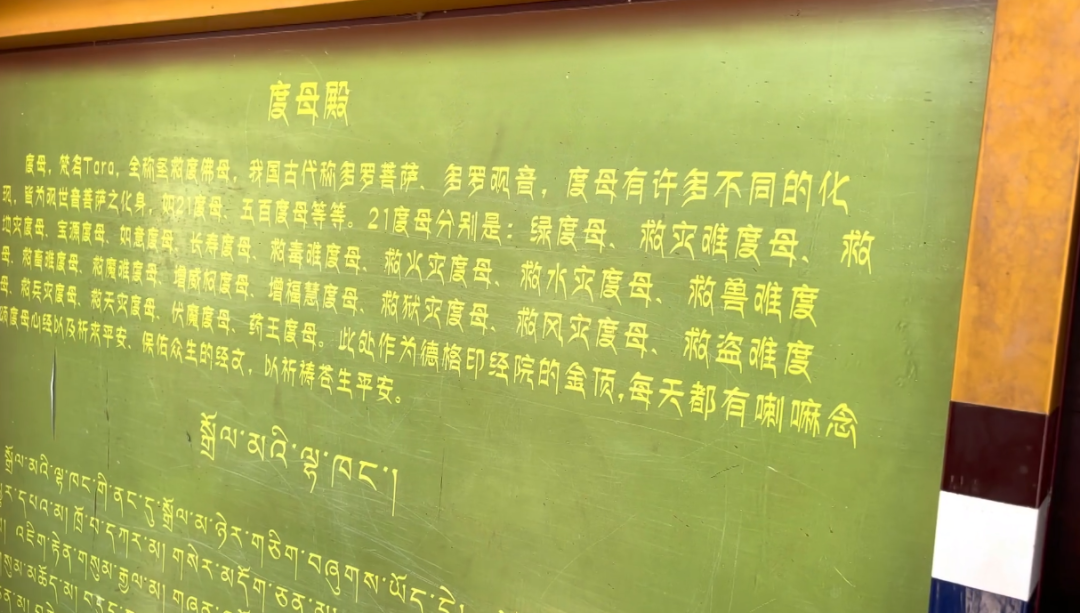 度母殿
度母，梵名Tara，全称圣救度佛母，我国古代称多罗菩萨、多罗观音，度母有许多不同的化
现，皆为观世音菩萨之化身，如21度母、五百度母等等。21度母分别是：绿度母、救灾难度母、救
地灾度母、宝源度母、如意度母、长寿度母、救毒难度母、救火灾度母、救水灾度母、救兽难度
母、救畜难度母、救魔难度母、增威权度母、增福慧度母、救狱灾度母、救风灾度母、救盗难度
母、救兵灾度母、救天灾度母、伏魔度母、药王度母。此处作为德格印经院的金顶,每天都有喇嘛念
诵度母心经以及祈来平安、保佑众生的经文，以祈祷苍生平安。
སྒྲོལ་མའི་ལྷ་ཁང་།
སྒྲོལ་མའི་ལྷ་ཁང་གི་ནང་དུ་སྒྲོལ་མ་ཉེར་གཅིག་བཞུགས་ཡོད་དེ།
དཔའ་མ། ཁྲོ་བ་དཀར་མ། གསེར་མདོག་ཅན་མ།
འཇིག་རྟེན་གསུམ་རྒྱལ་མ།